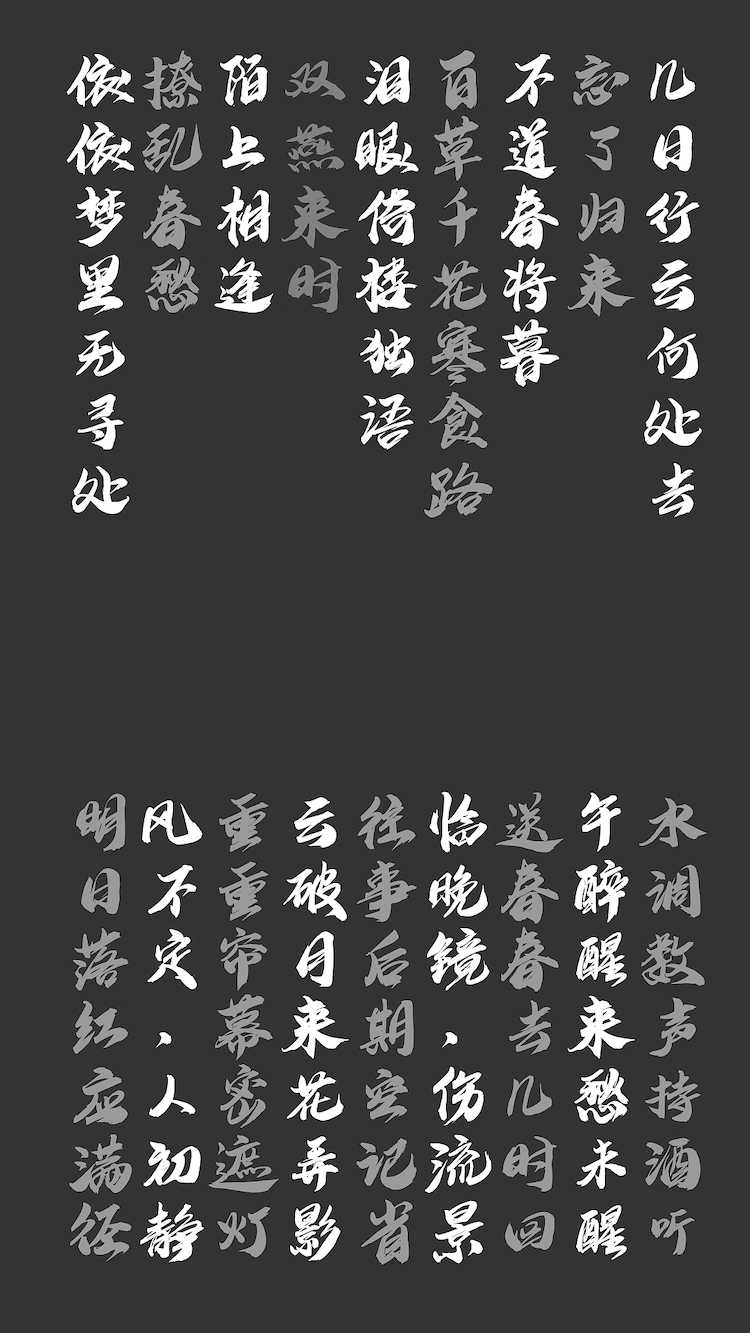 几日行云何处去
忘了归来
不道春将暮
百草千花寒食路
泪眼倚楼独语
双燕来时
陌上相逢
撩乱春愁
依依梦里无寻处
水调数声持酒听
午醉醒来愁未醒
送春春去几时回
临晚镜，伤流景
往事后期空记省
云破月来花弄影
重重帘幕密遮灯
风不定，人初静
明日落红应满径